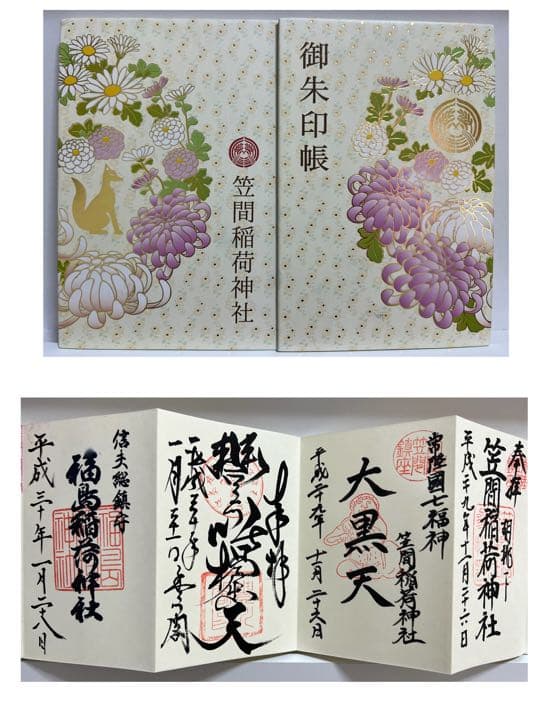 御朱印帳
笠間稲荷神社
奉拝
胡桃下
笠間稲荷神社
平成二十九年十一月二十六日
常陸國七福神
笠間鎮座
大黒天
笠間稲荷神社
平成二十九年十一月二十六日
奉拝
天
平成三十年
信夫総鎮守
福島稲荷神社
平成三十年一月二十八日